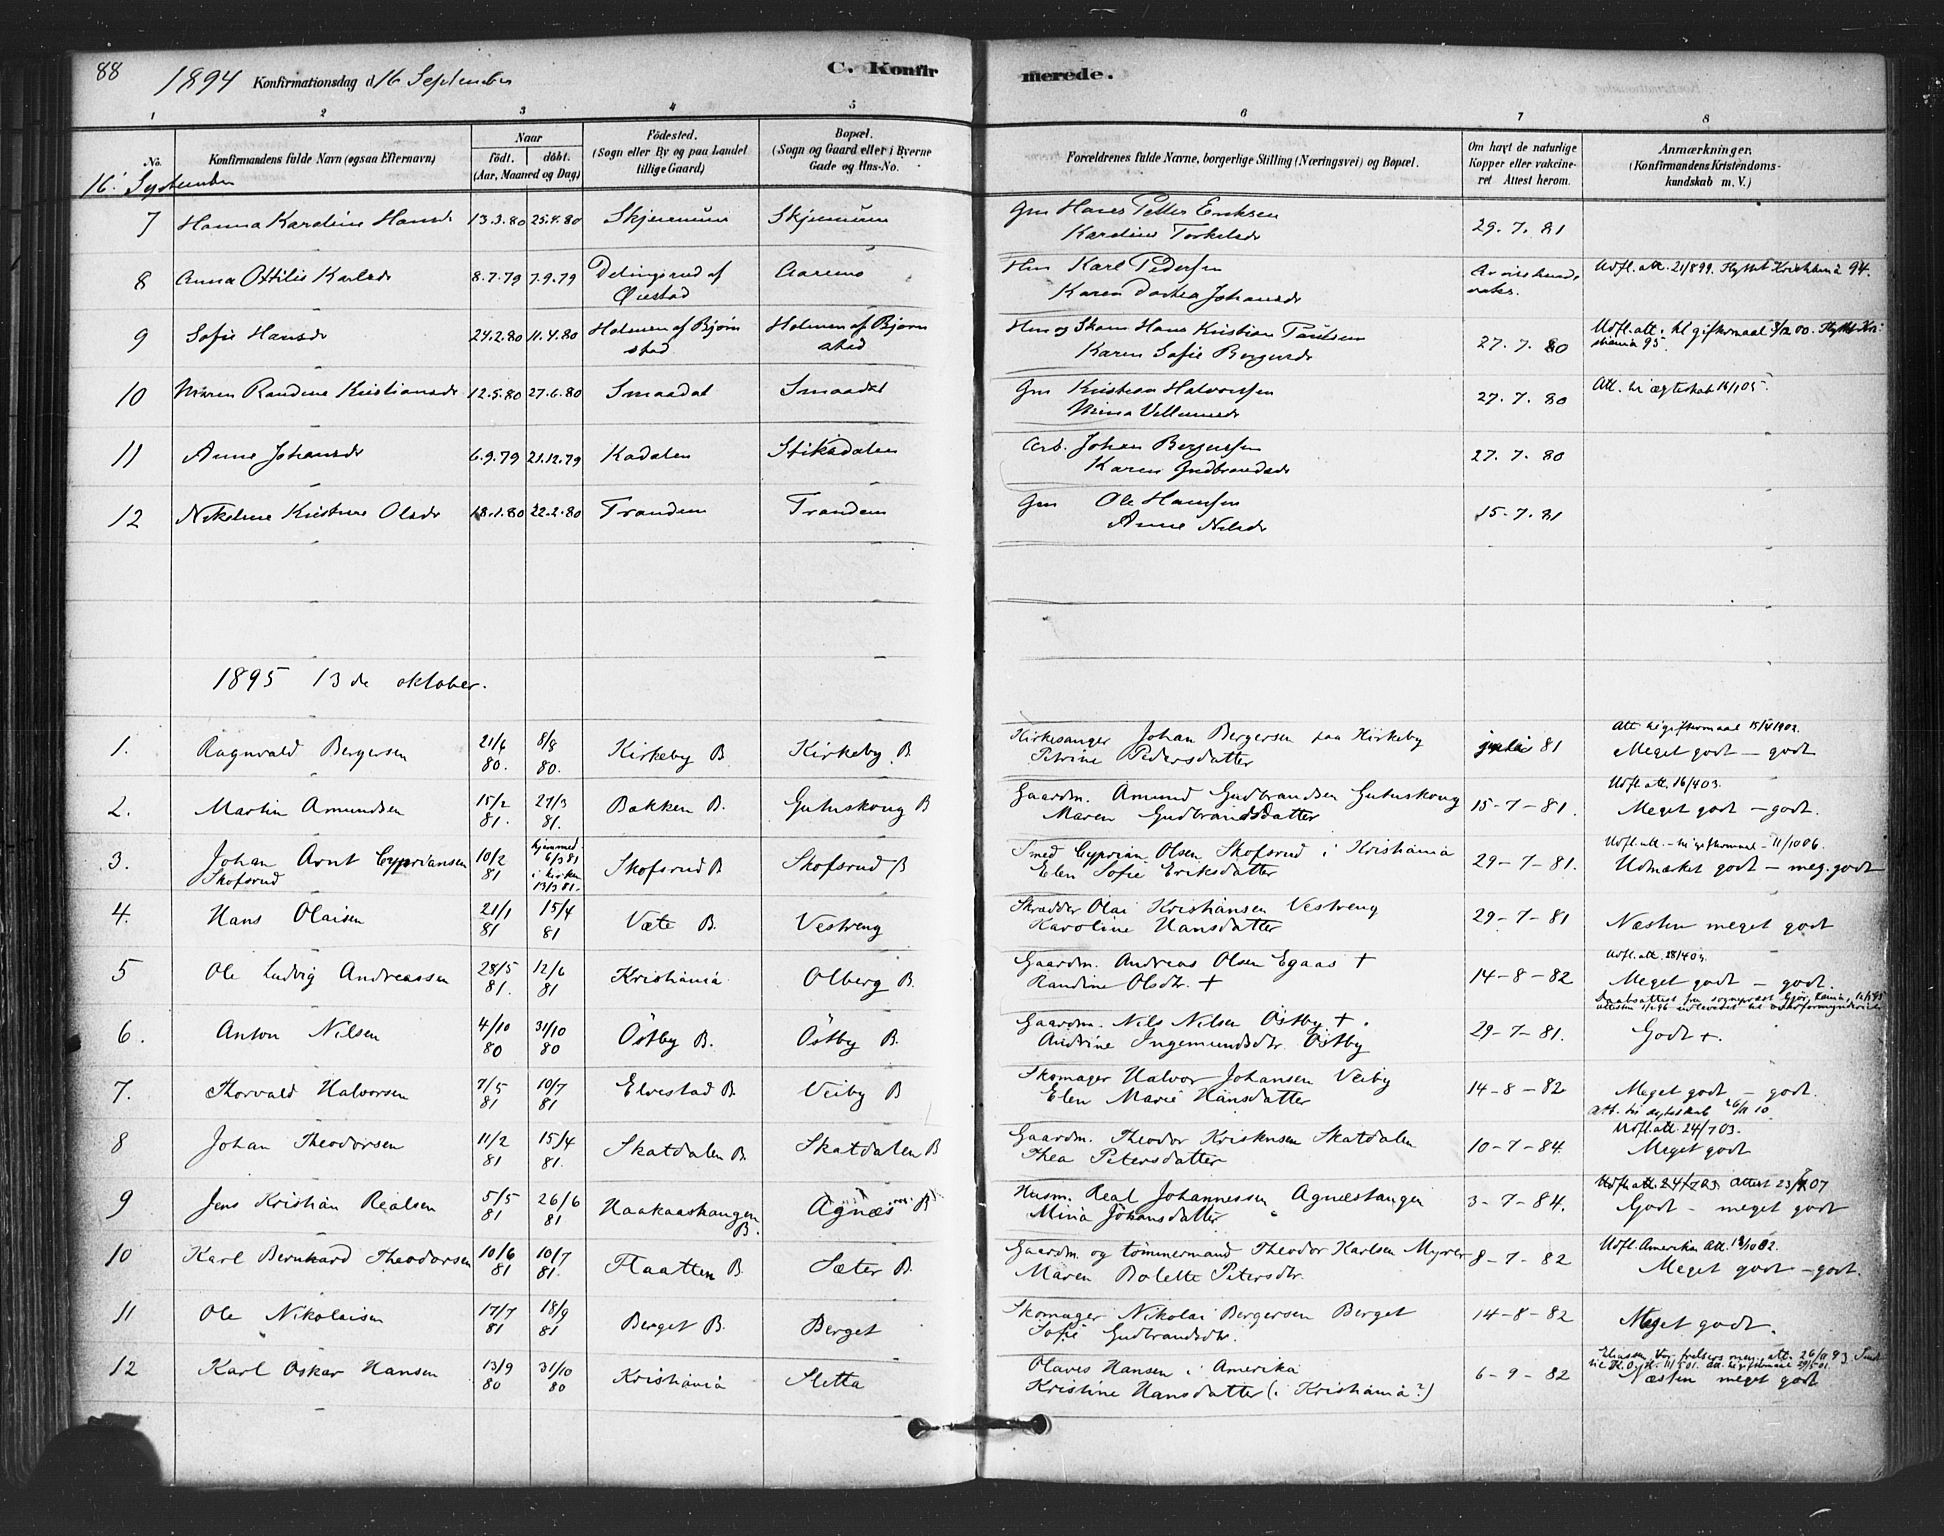 88
1894 Konfirmationsdag d 16 September
C. Konfirmerede.
1 2 3 4 5 6 7 8
No.
Konfirmandens fulde Navn (ogsaa Efternavn)
Naar
födt. döbt.
(Aar, Maaned og Dag)
Födested.
(Sogn eller By og paa Landet
tillige Gaard)
Bopæl.
(Sogn og Gaard eller i Byerne
Gade og Hus-No.
Forældrenes fulde Navne, borgerlige Stilling (Næringsvei) og Bopæl.
Om havt de naturlige
Kopper eller vakcine-
ret Attest herom.
Anmærkninger.
(Konfirmandens Kristendoms-
kundskab m. V.)
16. September
7 Hanna Karoline Hansdr 13.3.80 25.4.80 Skjennum Skjennum Gm Hans Petter Eriksen
Karoline Torkelsdr 29.7.81
8 Anna Ottilie Karlsdr 8.7.79 7.9.79 Delingsrud af
Øiestad Hm Karl Pedersen
Karen Dorthea Johansdr Udfl.att. 21/8 99. Flyttet Kristiania 94.
9 Sofie Hansdr 24.2.80 11.4.80 Holmen af Bjørn
stad Holmen af Bjørn
stad Hm og Skom Hans Kristian Paulsen
Karen Sofie Bergersdr 27.7.80 Udfl.att. til giftermaal 00. Flyttet Kri-
stiania 95.
10 Maren Randine Kristiansdr 12.5.80 27.6.80 Smaadal Smaadal Gm Kristian Halvorsen
Mina Villumsdr 27.7.80 Att. til ægteskab 16/1 05.
11 Anne Johansdr 6.9.79 21.12.79 Kadalen Stiksdalen Arb. Johan Bergersen
Karen Gudbrandsdr 27.7.80
12 Nikoline Kristine Olsdr 18.1.80 22.2.80 Trandem Trandem Gm Ole Hansen
Anne Nilsdr 15.7.81
1895 13de oktober.
1. Ragnvald Bergersen 21/6 80. 8/8 80. Kirkeby B. Kirkeby B. Kirkesanger Johan Bergersen paa Kirkeby
Petrine Pedersdatter juli 81 Att. til giftermaal 15/4 1902.
Meget godt — godt
2. Martin Amundsen 15/2 81. 27/3 81. Bakken B. Gutuskoug B Gaardm. Amund Gudbrandsen Gutuskoug
Maren Gudbrandsdatter 15-7-81. Udfl. att. 16/4 03.
Meget godt — godt.
3. Johan Arnt Cypriansen
Skofsrud 10/2 81 hjemmed.
6/3 81
i kirken
13/3 81. Skofsrud B Skofsrud B Smed Cyprian Olsen Skofsrud i Kristiania
Elen Sofie Eriksdatter 29-7-81. Udfl. att. — til giftermaal — 11/10 06.
Udmærket godt — meg. godt
4. Hans Olaisen 21/1 81 15/4 81 Væte B. Vestreng Skrædder Olai Kristiansen Vestreng
Karoline Hansdatter 29-7-81 Næsten meget godt
5 Ole Ludvig Andreassen 28/5 81. 12/6 81 Kristiania Olberg B. Gaardm. Andreas Olsen Egaas +
Randine Olsdtr. + 14-8-82 Udfl. att. 28/4 03.
Meget godt — godt.
6. Anton Nilsen 4/10 80 31/10 80 Östby B. Östby B. Gaardm. Nils Nilsen Östby +.
Andrine Ingemundsdtr. Östby 29-7-81. Godt +.
7. Thorvald Halvorsen 7/5 81 10/7 81 Elvestad B. Veiby B Skomager Halvor Johansen Veiby
Elen Marie Hansdatter 14-8-82 Meget godt — godt.
Att. til ægteskab 10.
8 Johan Theodorsen 11/2 81 15/4 81. Skatdalen B. Skatdalen B Gaardm. Theodor Kristensen Skatdalen
Thea Petersdatter 10-7-84. Udfl. att. 24/7 03.
Meget godt
9 Jens Kristian Realsen 5/5 81 26/6 81 Haakaashaugen
B. Agnæs B Husm. Real Johannessen Agnæstangen
Mina Johansdatter 3-7-84. Udfl. att. 24/7 03. Attest
Godt — meget godt
10 Karl Bernhard Theodorsen 10/6 81 10/7 81. Flaatten B. Sæter B. Gaardm. og tömmermand Theodor Karlsen Myrer
Maren Bolette Petersdtr. 8-7-82 Udfl. Amerika Att.
Meget godt — godt.
11 Ole Nikolaisen 17/7 81 18/9 81 Berget B. Berget Skomager Nikolai Bergersen Berget
Sofie Gudbrandsdtr. 14-8-82 Meget godt.
12 Karl Oskar Hansen 13/9 80 31/10 80 Kristiania Sletta Olaves Hansen i Amerika
Kristine Hansdatter (i Kristiania?) 6-9-82
Næsten meget godt